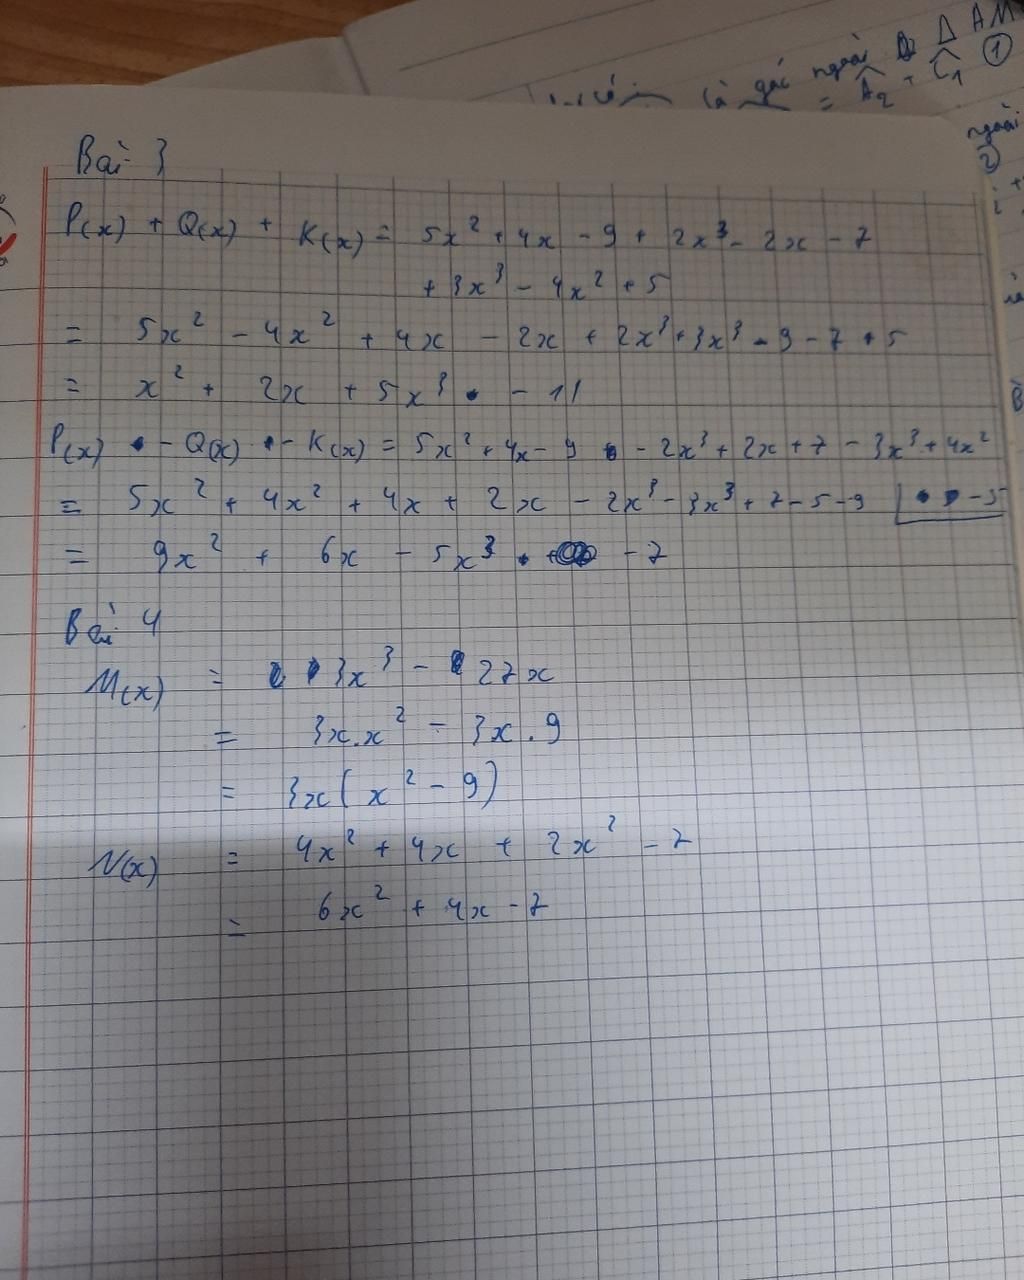 là góc ngoài Δ AM
= A₂ + C₁ ①
ngoài
②
Bài 3
P(x) + Q(x) + K(x) = 5x² + 4x - 9 + 2x³ - 2x - 7
+ 3x³ - 4x² + 5
= 5x² - 4x² + 4x - 2x + 2x³ + 3x³ - 9 - 7 + 5
= x² + 2x + 5x³ - 11
P(x) - Q(x) - K(x) = 5x² + 4x - 9 - 2x³ + 2x + 7 - 3x³ + 4x²
- 5
= 5x² + 4x² + 4x + 2x - 2x³ - 3x³ + 7 - 5 - 9
= 9x² + 6x - 5x³ - 7
Bài 4
M(x) = 3x³ - 27x
= 3x.x² - 3x.9
= 3x(x² - 9)
N(x) = 4x² + 4x + 2x² - 7
= 6x² + 4x - 7